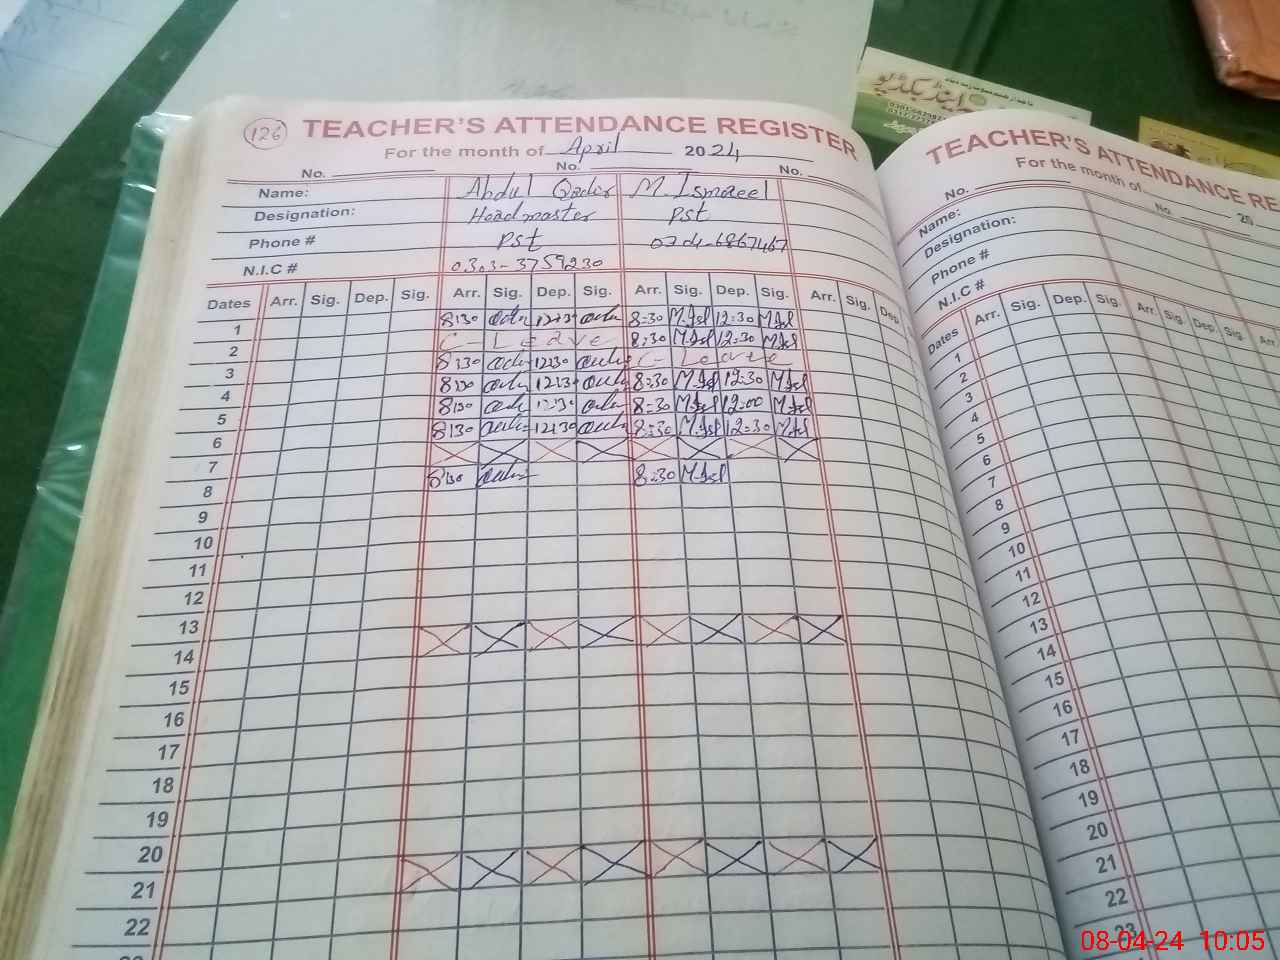 اینڈ بکڈپو
126 TEACHER'S ATTENDANCE REGISTER
For the month of April 2024
No. No. No.
Name: Abdul Qadir M. Ismaeel
Designation: Headmaster PST
Phone # PST
N.I.C # 0303-3759230
Dates Arr. Sig. Dep. Sig. Arr. Sig. Dep. Sig. Arr. Sig. Dep. Sig. Arr. Sig. Dep.
1 8:30 12:30 8:30 M.Isl 12:30 M.Isl
2 C-Leave 8:30 M.Isl 12:30 M.Isl
3 8:30 12:30 C-Leave
4 8:30 12:30 8:30 M.Isl 12:30 M.Isl
5 8:30 12:30 8:30 M.Isl 12:00 M.Isl
6 8:30 12:30 8:30 M.Isl 12:30 M.Isl
7
8 8:30 8:30 M.Isl
9
10
11
12
13
14
15
16
17
18
19
20
21
22
TEACHER'S ATTENDANCE RE
For the month of 20
No. No.
Name:
Designation:
Phone #
N.I.C #
Dates Arr. Sig. Dep. Sig. Arr. Sig. Dep. Sig.
1
2
3
4
5
6
7
8
9
10
11
12
13
14
15
16
17
18
19
20
21
22
23
08-04-24 10:05